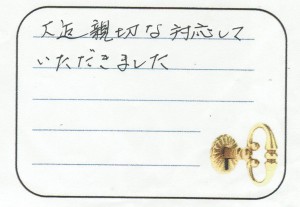 大変親切な対応して
いただきました